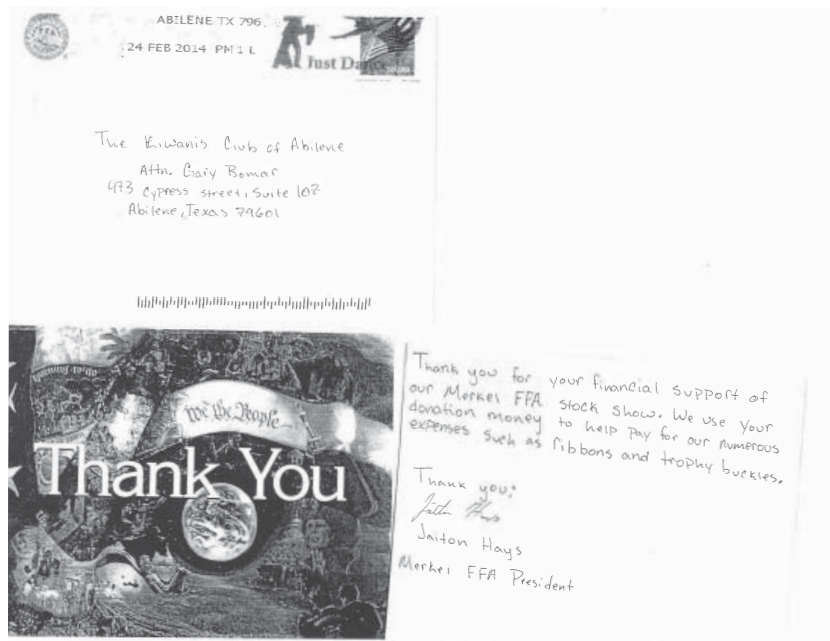 ABILENE TX 796
24 FEB 2014 PM 1 L
Just Dance
The Kiwanis Club of Abilene
Attn. Gary Bomar
473 Cypress street, Suite 102
Abilene, Texas 79601
We the People
Thank You
Thank you for your financial support of
our Merkel FFA stock show. We use your
donation money to help pay for our numerous
expenses such as ribbons and trophy buckles.
Thank you,
Jaiton Hays
Merkel FFA President